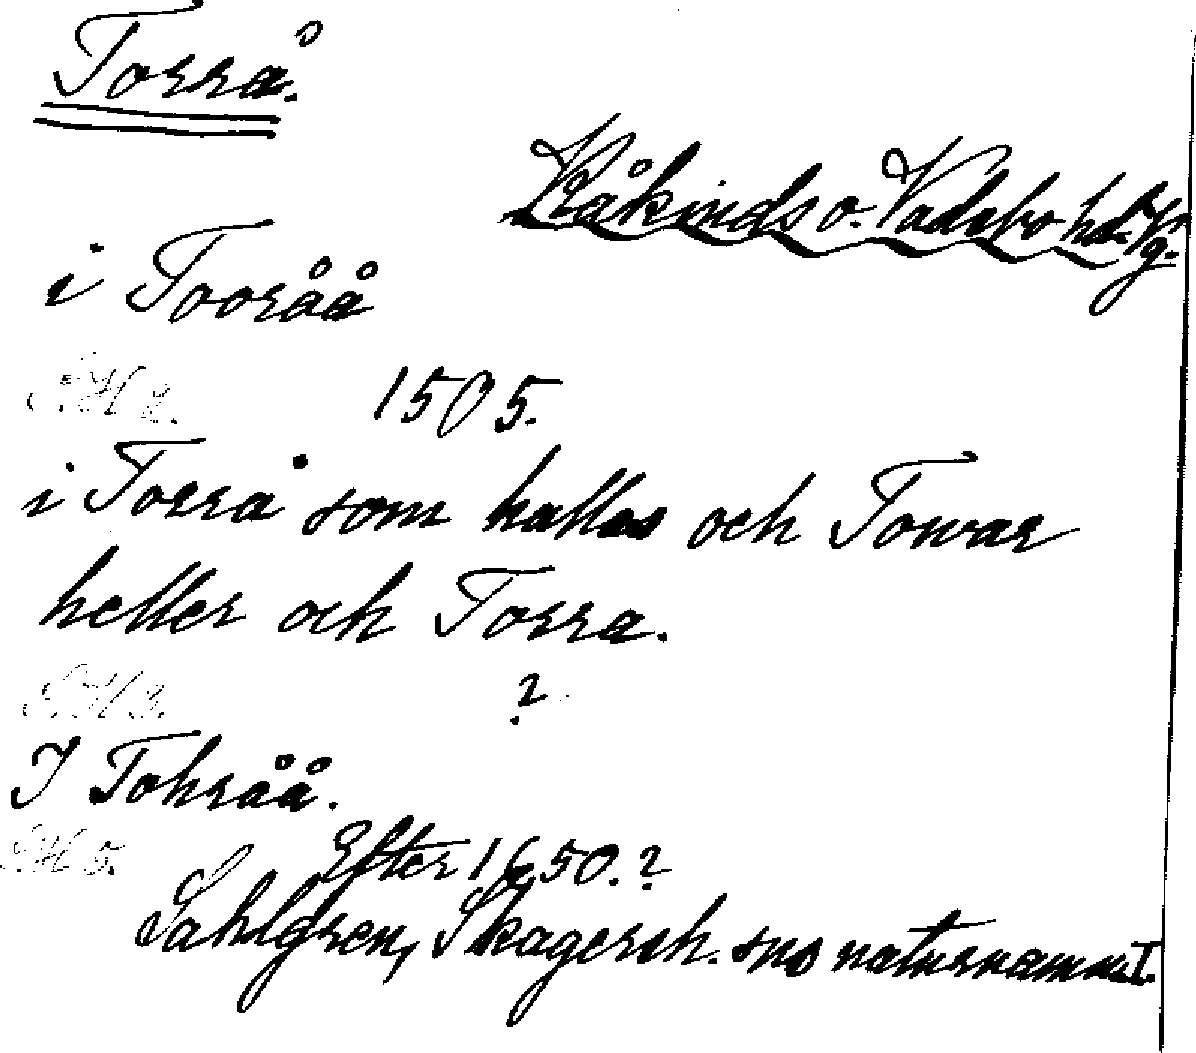 Torrå.
Kåkinds o. Vadsbo hd. Vg.
i Tooråå
S.H 2. 1505.
i Torrå som kallas och Towar
heller och Torra.
S.H 3. ?
I Tohråå.
S.H 5. Efter 1650.?
Sahlgren, Skagersh. sns naturnamn I.